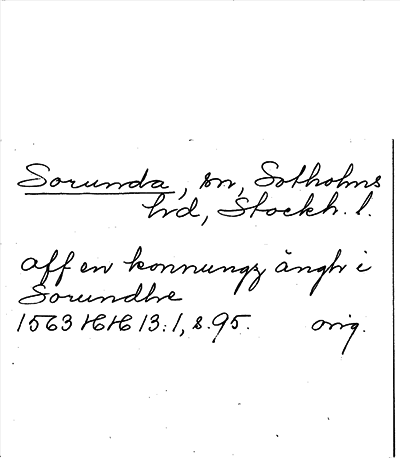 Sorunda, sn, Sotholms
hd, Stockh. l.
aff en konnungz ängh i
Sorundhe
1563 HH 13:1, s. 95. orig.